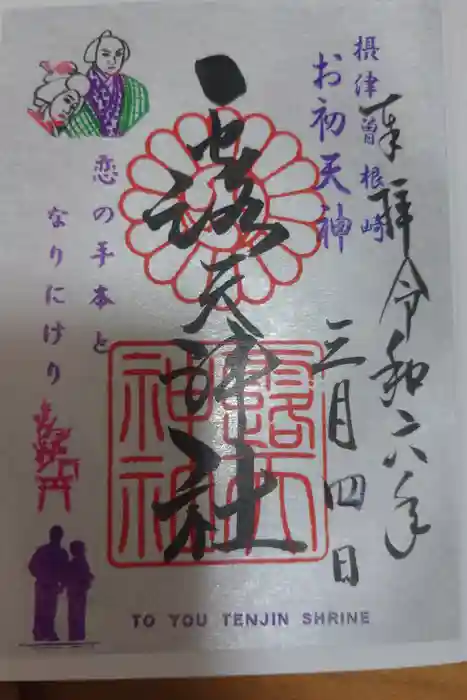 奉拝 令和六年
三月四日
摂津曽根崎
お初天神
露天神社
恋の手本と
なりにけり
露天
神社
TO YOU TENJIN SHRINE